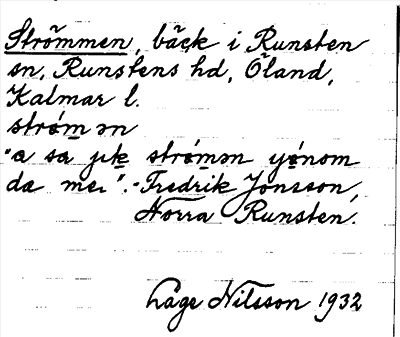 Strömmen, bäck i Runsten
sn, Runstens hd, Öland,
Kalmar l.
strǿmən
"a sa jɩk strǿmən jǿnom
da meɩ". - Fredrik Jonsson,
Norra Runsten.
Låge Nilsson 1932